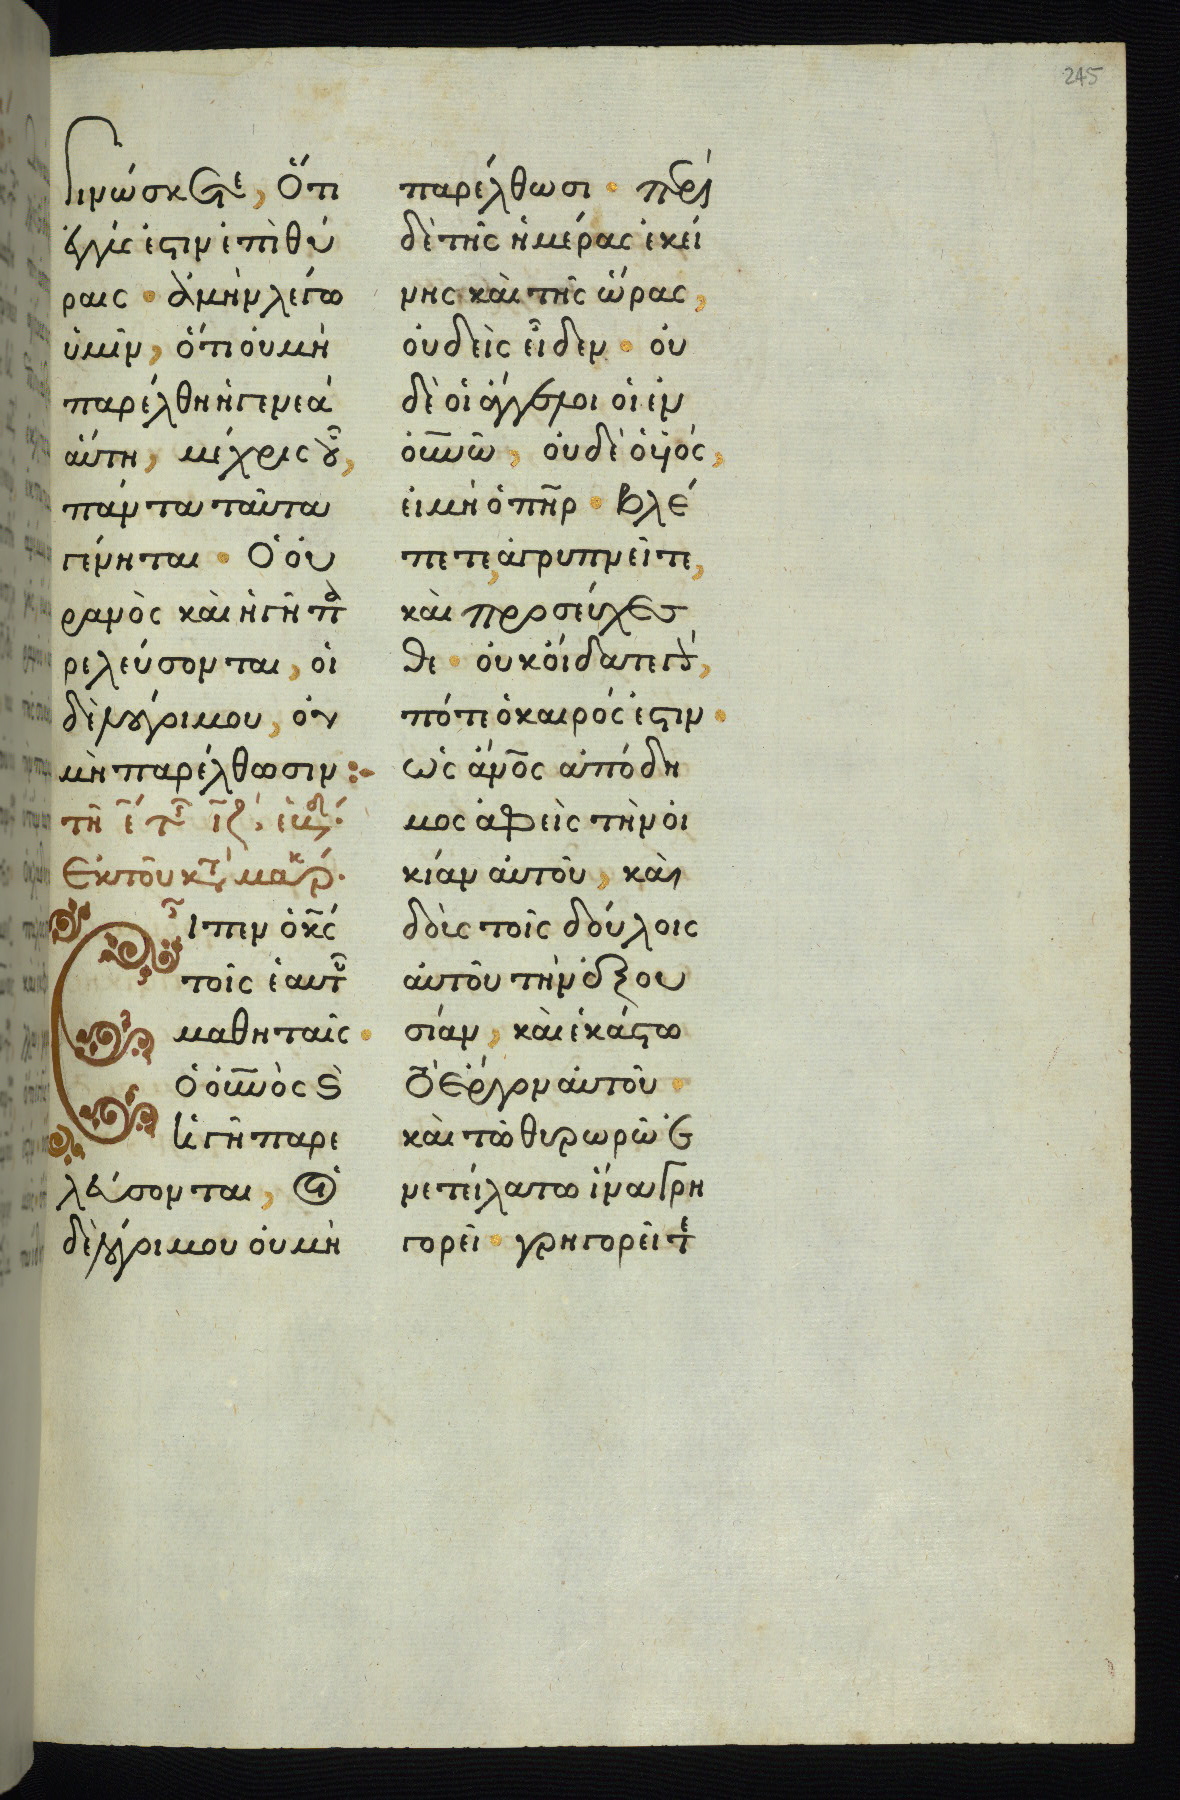 245
γινώσκετε, Ὅτι
ἐγγύς ἐστιν ἐπὶ θύ
ραις · ἀμὴν λέγω
ὑμῖν, ὅτι οὐ μὴ
παρέλθη ἡ γενεὰ
ἅυτη, μέχρις οὗ,
πάντα ταῦτα
γένηται · Ὁ οὐ
ρανὸς καὶ ἡ γῆ πα
ρελεύσονται, οἱ
δὲ λόγοι μου, οὐ
μὴ παρέλθωσιν :-
τῆ ε̄ τῆς ιζ
Ἐκ τοῦ κτ μαρκ.
Ἶπεν ὁ κ̅ς
τοῖς ἑαυτοῦ
μαθηταῖς ·
Ὁ ο̅υ̅ν̅ὸς κ
αὶ ἡ γῆ παρε
λεύσονται, οἱ
δὲ λόγοι μου οὐ μὴ
παρέλθωσι · περὶ
δὲ τῆς ἡμέρας ἐκεί
νης καὶ τῆς ὥρας,
οὐδεὶς εἶδεν · οὐ
δὲ οἱ ἄγγελοι οἱ ἐν
ο̅υ̅ν̅ῶ, οὐδὲ ὁ υἱός,
εἰ μὴ ὁ π̅η̅ρ · Βλέ
πετε, ἀγρυπνεῖτε,
καὶ προσεύχεσ
θε · οὐκ ὄιδατε γὰρ,
πότε ὁ καιρός ἐστιν ·
ὡς ἄν̅ο̅ς ἀπόδη
μος ἀφεὶς τὴν οἰ
κίαν αὐτοῦ, καὶ
δοὺς τοῖς δούλοις
αὐτοῦ τὴν ἐξου
σίαν, καὶ ἑκάστω
τὸ ἔργον αὐτοῦ ·
καὶ τῶ θυρωρῶ ἐ
νετείλατο ἵνα γρη
γορεῖ · γρηγορεῖτε